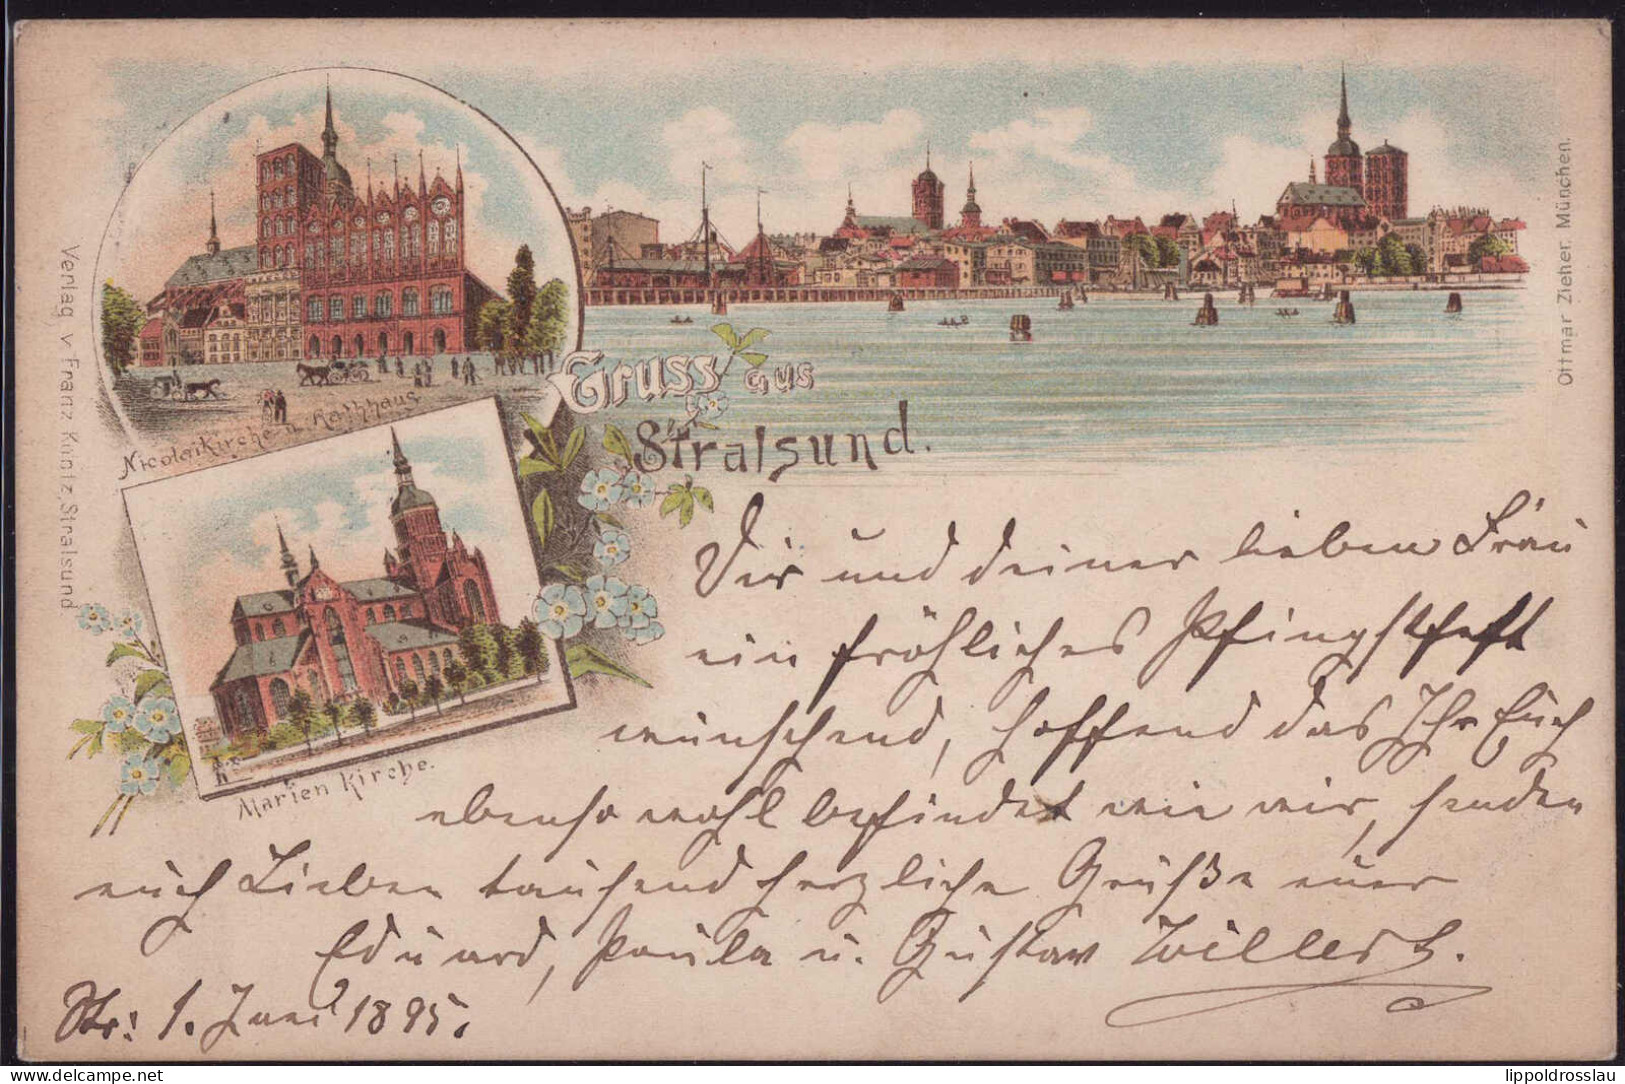 Gruss aus
Stralsund.
Nicolaikirche u. Rathhaus
Marien Kirche.
Verlag v. Franz Kuntz, Stralsund
Ottmar Zieher. München.
Dir und deiner lieben Frau
ein fröhliches Pfingstfest
wünschend, hoffend das Ihr Euch
ebenso wohl befindet wie wir, senden
euch Lieben tausend herzliche Grüße euer
Eduard, Paula u. Gustav Willert.
Str: 1. Juni 1895.
delcampe.net
lippoldrosslau